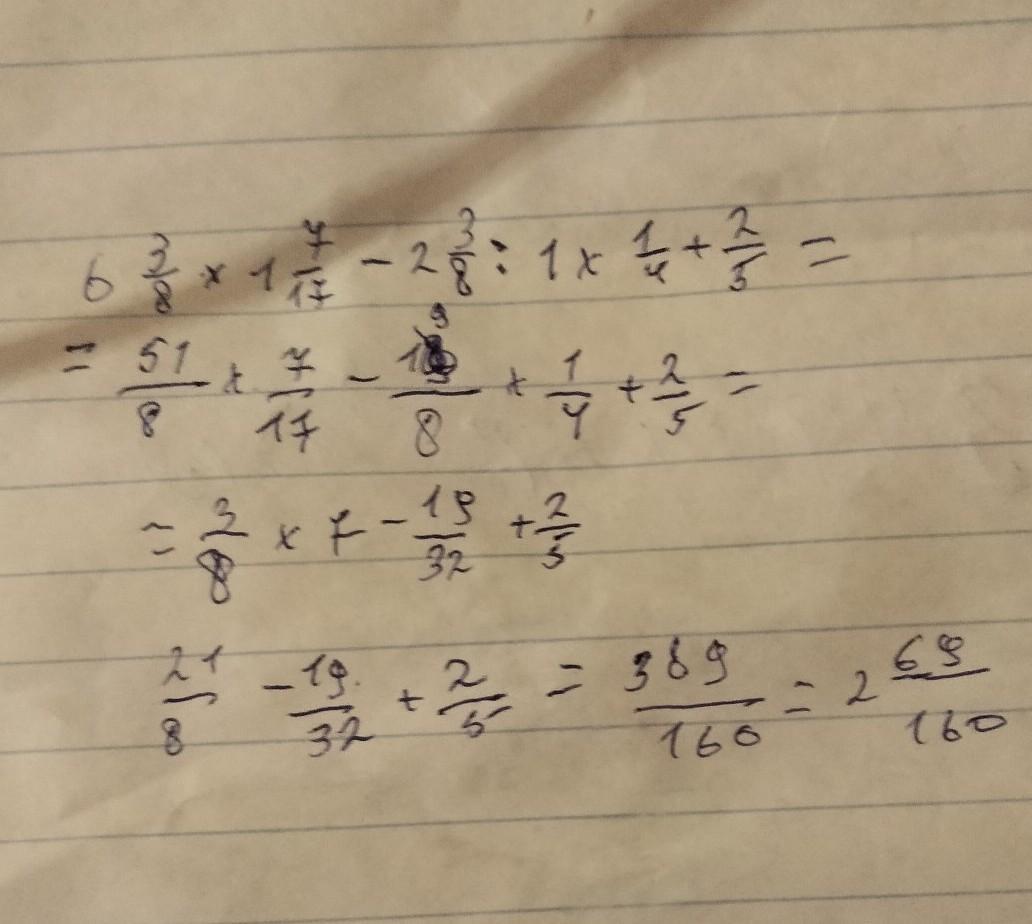 6 3/8 × 1 7/17 - 2 3/8 : 1 × 1/4 + 2/5 =
= 51/8 × 7/17 - 19/8 × 1/4 + 2/5 =
= 3/8 × 7 - 19/32 + 2/5
21/8 - 19/32 + 2/5 = 389/160 = 2 69/160